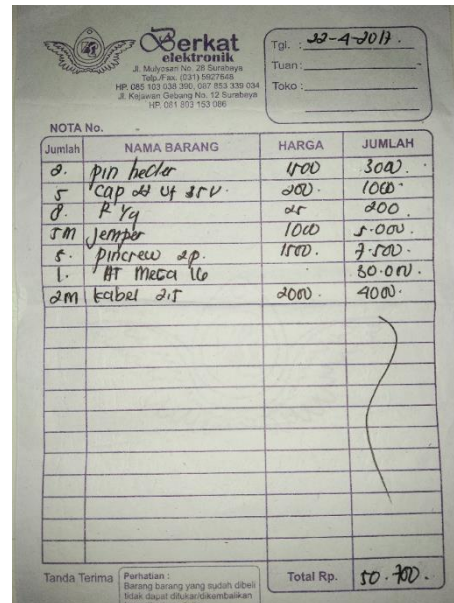 Berkat
elektronik
Jl. Mulyosari No. 28 Surabaya
Telp./Fax. (031) 5927646
HP. 085 103 038 390, 087 853 339 034
Jl. Kejawan Gebang No. 12 Surabaya
HP. 081 803 153 086
Tgl. : 22-4-2017.
Tuan :
Toko :
NOTA No.
Jumlah NAMA BARANG HARGA JUMLAH
2. pin heder 1500 3000.
5 Cap uf 35V. 200. 1000.
8. R 1/4 25 200
5m jemper 1000 5.000.
5. pincrew 2p. 1500. 7.500.
1. AT Mega 16 30.000.
2m kabel 2,5 2000. 4000.
Tanda Terima
Perhatian :
Barang barang yang sudah dibeli
tidak dapat ditukar/dikembalikan
Total Rp. 50.700.